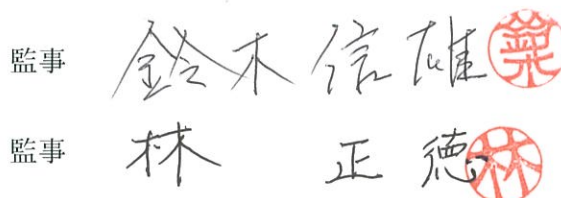 監事 鈴木 信雄
監事 林 正徳 林